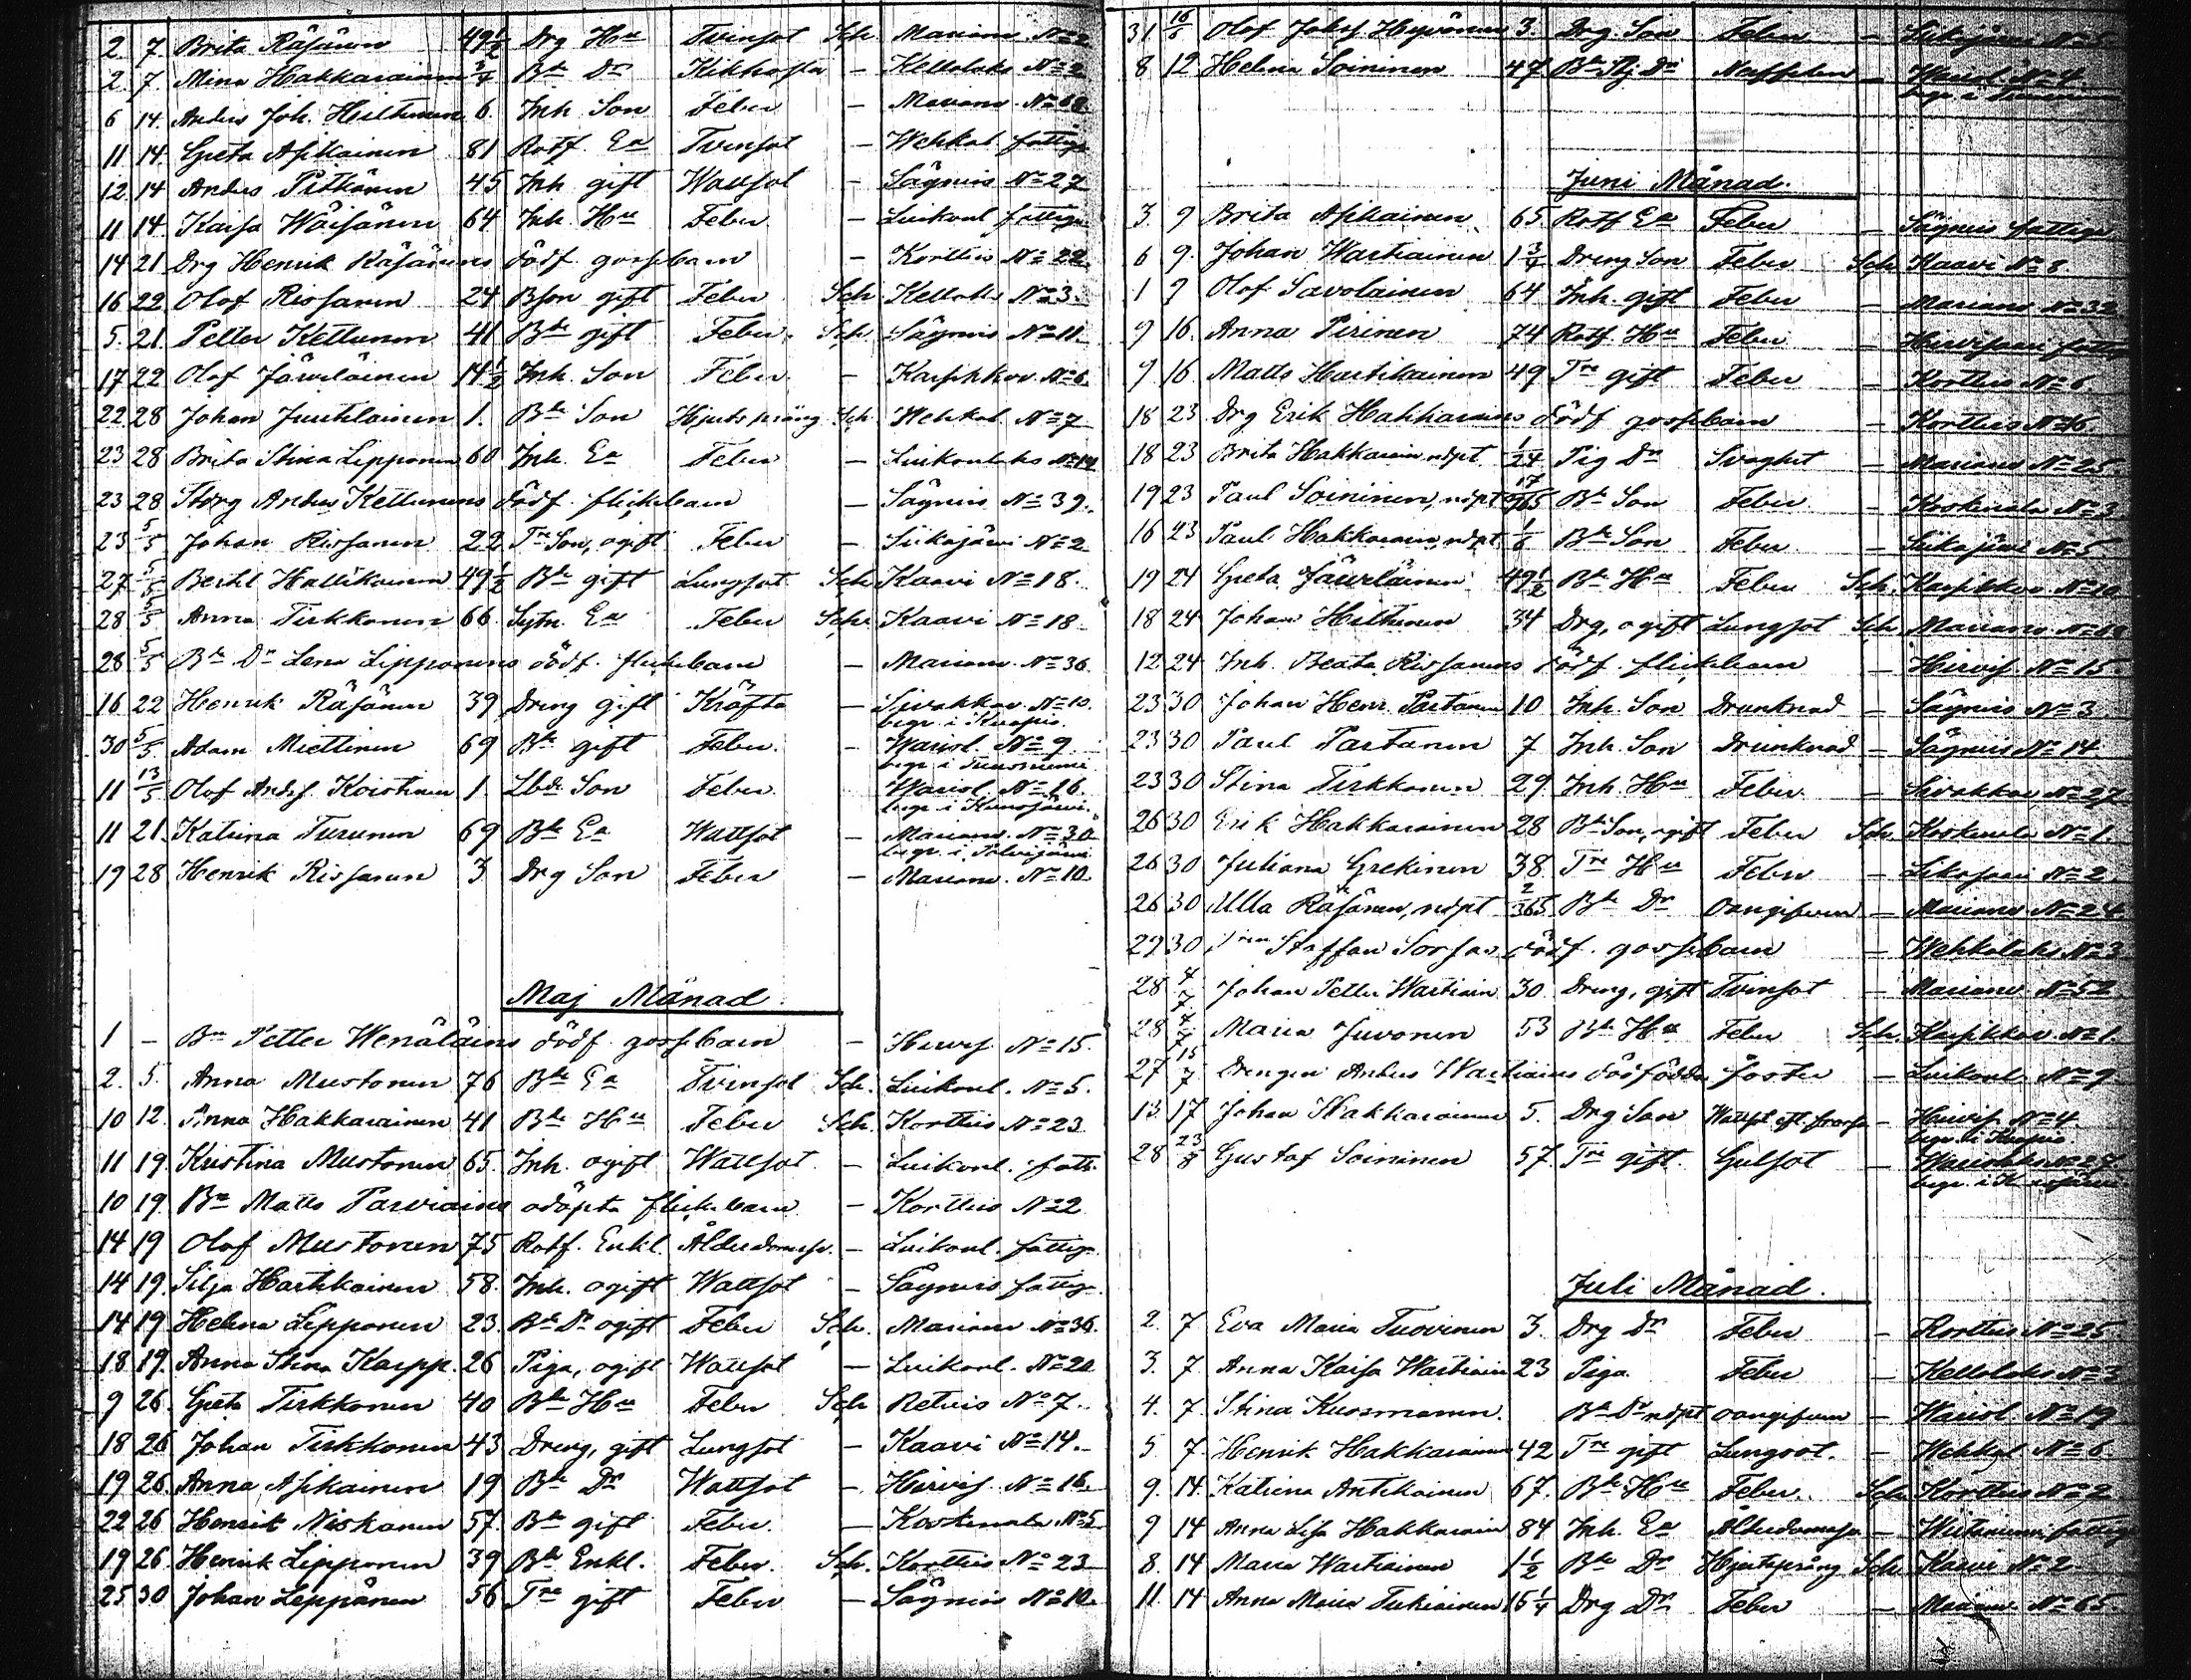 2. 7. Brita Räsänen 49½ Drg Hu Tvinsot Sch Marianv. No 2
2. 7. Mina Hakkarainen ¾ Bde Dr Kikhosta – Kellolaks No 2
6 14. Anders Joh. Hiltunen 6. Inh Son Feber – Marianv. No 68
11 14. Greta Asikainen 81 Rotf. Ea Tvinsot – Wehkal. fattige
12 14 Anders Pitkänen 45 Inh gift Wattsot – Sägnris No 27
11 14. Kaisa Wäisänen 64 Inh. Hu Feber. – Luikonl. fattige
14 21 Drg Henrik Räsänens dödf. gossebarn – Korttis No 22
16 22 Olof Rissanen 24 Bson gift Feber Sch Kellolaks No 3
5. 21. Petter Kettunen 41 Bde gift Feber. Sch. Sägnris No 11.
17 22 Olof Järveläinen 14½ Inh. Son Feber. – Karsikkov. No 6
22 28 Johan Juutilainen 1. Bde Son Hjertsprång Sch. Wehkal. No 7
23 28 Brita Stina Lipponen 60 Inh. Ea Feber – Luikonlaks No 19
23 28 Storg Anders Kettunens dödf. flickebarn – Sägnris No 39.
23 5/5 Johan Rissanen 22 Trp Son, ogift Feber – Siikajärvi No 2
27 5/5 Bertil Hallikainen 49½ Bde gift Lungsot Sch Kaavi No 18.
28 5/5 Anna Tirkkonen 66. Sytn. Ea Feber Sch. Kaavi No 18
28 5/5 Bde Dr Lena Lipponens dödf. flickebarn – Marianv. No 36.
16 22 Henrik Räsänen 39 Dreng gift Kräfta – Sivakkav. No 10.
begr. i Kuopio.
30 5/5 Adam Miettinen 69 Bde gift Feber. – Warisl. No 9
begr. i Tuusniemi
11 13/5 Olof Andss. Koistinen 1. Lbde Son Feber. Warisl. No 16.
begr. i Kuusjärvi.
11 21. Katrina Turunen 69 Bde Ea Wattsot – Marianv. No 30
begr. i Polvijärvi
19 28 Henrik Rissanen 3 Drg Son Feber – Marianv. No 10.
Maj Månad.
1 – Bn Petter Wenäläins dödf. gossebarn – Hirvis. No 15.
2. 5. Anna Mustonen 76 Bde Ea Tvinsot Sch. Luikonl. No 5.
10 12. Anna Hakkarainen 41 Bde Hu Feber Sch. Korttis No 23
11 19. Kristina Mustonen 65. Inh. ogift Wattsot – Luikonl. fatt.
10 19. Bn Matts Parviains odöpta flickebarn – Korttis No 2
14 19 Olof Mustonen 75 Rotf. Enkl. Ålderdomssv. – Luikonl. fattige.
14 19. Silja Hartikainen 58. Inh. ogift Wattsot – Sägnris fattige.
14 19 Helena Lipponen 23. Bde Dr ogift Feber Sch. Marianv No 36.
18 19. Anna Stina Karpp. 26 Piga, ogift Wattsot – Luikonl. No 20
9 26. Greta Tirkkonen 40 Bde Hu Feber Sch Retuis No 7.
18 26 Johan Tirkkonen 43 Dreng, gift Lungsot – Kaavi No 14.
19 26. Anna Asikainen 19 Bde Dr Wattsot – Hirvis. No 16
22 26 Henrik Niskanen 57. Bde gift Feber. – Koskenala No 5
19 26. Henrik Lipponen 39 Bde Enkl. Feber. Sch. Korttis No 23
25 30 Johan Leppänen 56 Trp gift Feber – Sägnris No 10.
31 16/5 Olof Johss Hyvönen 3. Drg. Son Feber – Siikajärvi No 5
8 12 Helena Soininen 47 Nerffeber – Warisl. No 4.
begr. i Tuusniemi
Juni Månad.
3. 9 Brita Asikainen 65. Rotf Ea Feber – Sägnris fattige
6 9. Johan Wartiainen 1¾ Dreng Son Feber Sch Kaavi No 8.
1 9 Olof Savolainen 64 Inh. gift Feber – Marianv No 32
9 16. Anna Pirinen 74 Rotf. Hu Feber – Hirvisaari fattige
9 16 Matts Hartikainen 49 Trp gift Feber – Korttis No 6
18 23 Drg Erik Hakkarains dödf gossebarn – Korttis No 16.
18 23 Brita Hakkarain ndpt. 1/24 Pig Dr Svaghet – Marianv No 25.
19 23 Paul Soininen, ndpt 17/365 Bde Son Feber – Koskenala No 3
16 23 Paul Hakkarain, ndpt 1/6 Bde Son Feber. – Siikajärvi No 5
19 24 Greta Järveläinen 49½ Bde Hu Feber Sch. Karsikkov No 10
18 24 Johan Hiltunen 34 Drg, ogift Lungsot Sch Marianv No 68
12 24 Inh. Beata Rissanens dödf. flickebarn – Hirvis No 15.
23 30 Johan Henr. Partanen 10 Inh. Son Drunknad – Sägnris No 3
23 30 Paul Partanen 7 Inh. Son Drunknad – Sägnris No 14.
23 30 Stina Tirkkonen 29 Inh. Hu Feber. – Sivakkav No 27
26 30 Erik Hakkarainen 28 Bde Son, ogift Feber Sch. Koskenala No 1.
26 30 Juliana Grekinen 38. Trp Hu Feber – Siikajärvi No 2
26 30 Ulla Räsänen, ndpt 2/365 Bde Dr Oangifven – Marianv No 24.
29 30 Staffan Sorsas dödf. gossebarn – Wehkalaks No 3
28 4/7 Johan Petter Wartiain. 30. Dreng, gift Tvinsot – Marianv No 52
28 4/7 Maria Juvonen 53 Bde Hu Feber Sch. Karsikkov. No 1.
27 15/7 Drengen Anders Wartiains dödfödda foster – Luikonl. No 9
13. 17 Johan Hakkarainen 5. Drg Son – Hirvis. No 4.
begr. i Kuopio.
28 23/8 Gustaf Soininen 57. Trp gift. Gulsot – No 27.
begr. i Kuusjärvi
Juli Månad.
2. 7 Eva Maria Tuovinen 3. Drg Dr Feber – Korttis No 25.
3. 7 Anna Kaisa Wartiain 23 Piga Feber – Kellolaks No 3
4. 7. Stina Kuosmanen. Bde Dr ndpt Oangifven – Warisl. No 19
5 7. Henrik Hakkarainen 42 Trp gift Lungsot. – Wehkal No 6.
9. 14. Katrina Antikainen 67. Bde Hu Feber. Sch Korttis No 2
9 14 Anna Lisa Hakkarain 84 Inh. Ea Ålderdomssv – fattige
8. 14 Maria Wartiainen 1½ Bde Dr Hjertsprång Sch Kaavi No 2
11. 14 Anna Maria Tukiainen 15¼ Drg Dr Feber – Marianv No 65